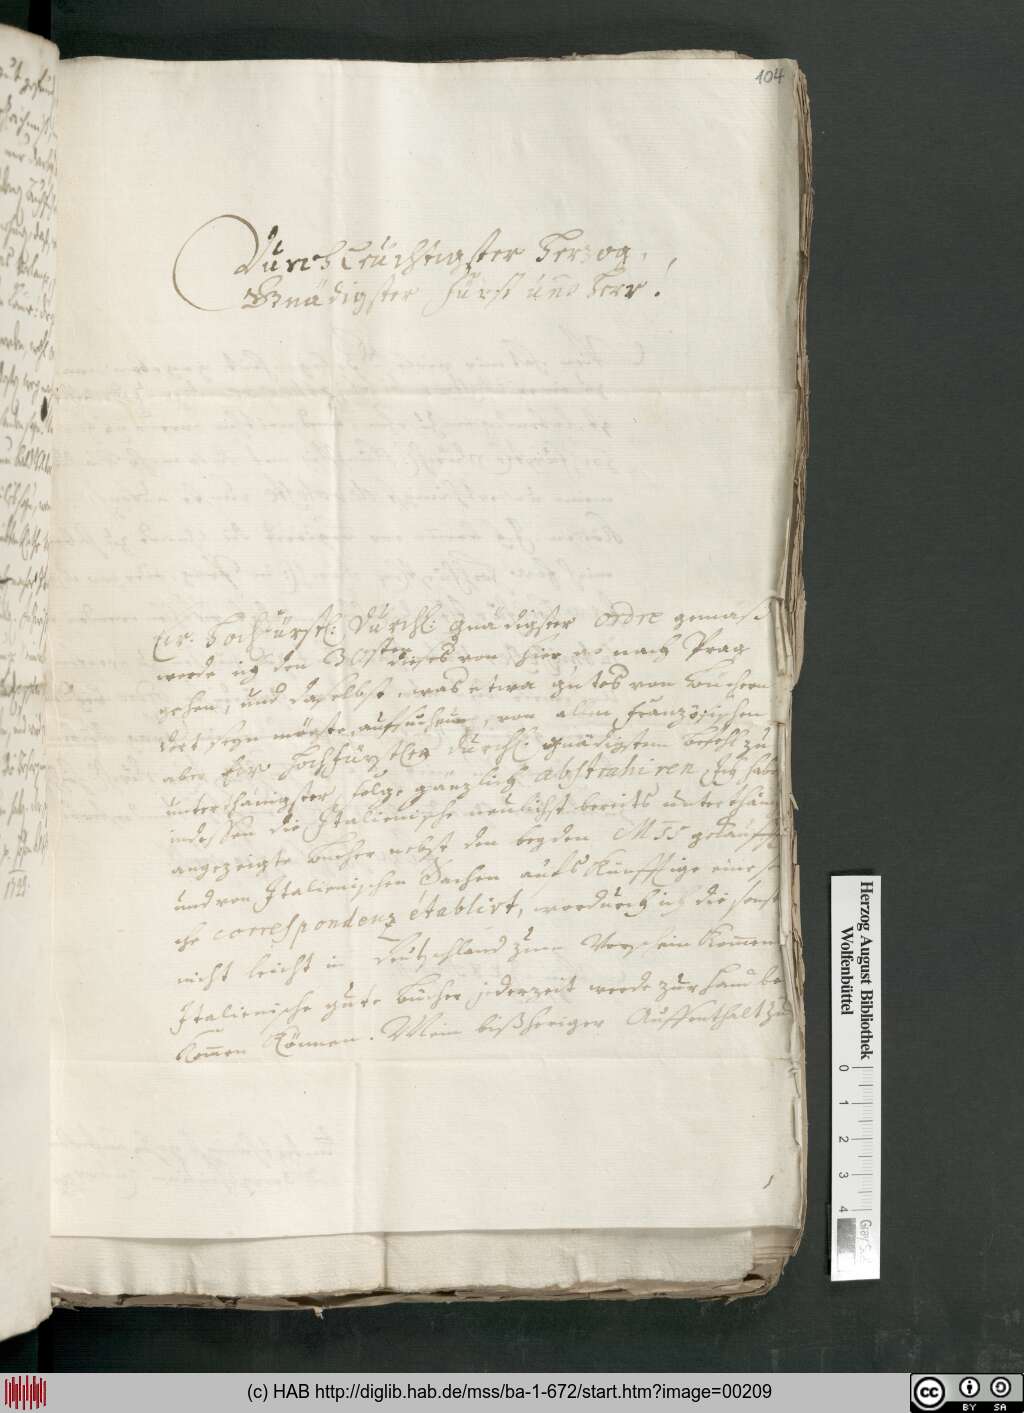 104
Durchleüchtigster Herzog,
Gnädigster Fürst und Herr!
Ew. Hochfürstl: Dürchl: gnädigster ordre gemäß
werde ich den 30ster dieses von hier ab nach Prag
gehen, und daselbst was etwa gutes von büchern
dort seyn möchte aufsuchen, von allen Französischen
aber Ew. Hochfürstlen Dürchl. gnädigstem befehl zu
unterthänigster folge gänzlich abstrahiren. Ich habe
indessen die Italienische neulichst bereits unterthän:
angezeigte bücher nebst den beyden MSS gekaufft,
und von Italienischen Sachen aufs Künfftige eine sol
che correspondenz etablirt, wordurch ich die sonst
nicht leicht in Deütschland zum Vorschein kommen
Italienische gute bücher jederzeit werde zur hand be
kommen können. Mein bißheriger Auffenthalt zu
Herzog August Bibliothek
Wolfenbüttel
0 1 2 3 4
(c) HAB http://diglib.hab.de/mss/ba-1-672/start.htm?image=00209
cc BY SA